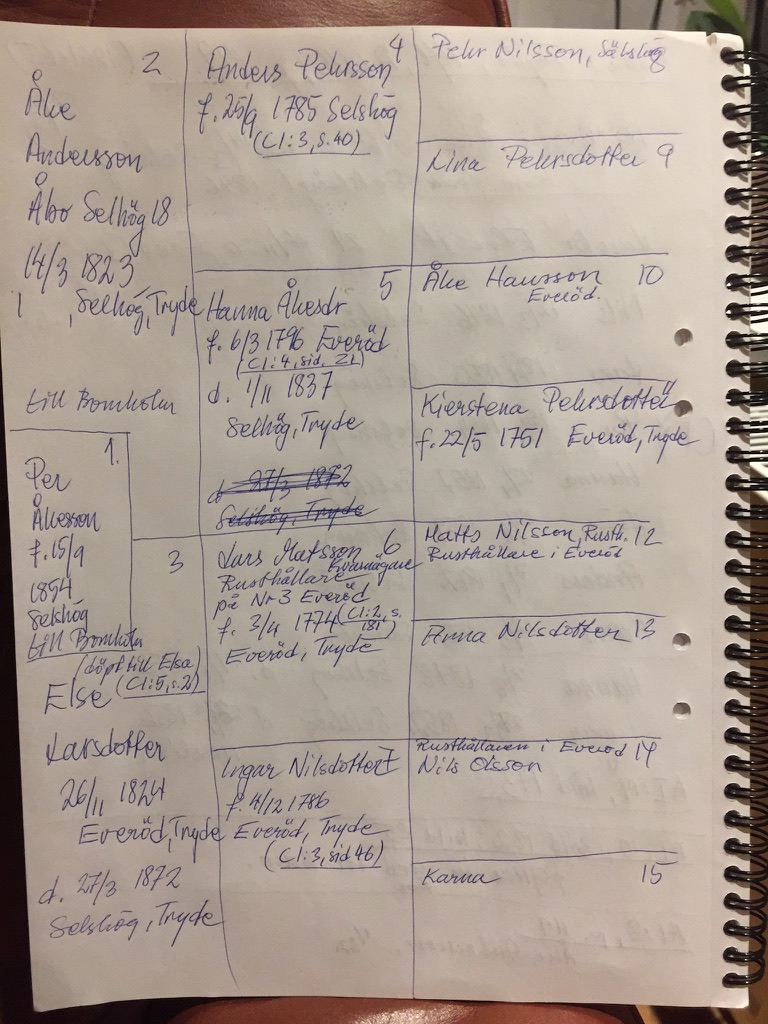 2
Åke
Andersson
Åbo Selhög 18
14/3 1823
1
, Selhög, Tryde
till Bornholm
1.
Per
Åkesson
f. 15/9
1854
Selshög
till Bornholm
3
(döpt till Elsa)
Else (CI:5, s.2)
Larsdotter
26/11 1824
Everöd, Tryde
d. 27/3 1872
Selshög, Tryde
4
Anders Pehrsson
f. 25/9 1785 Selshög
(CI:3, s.40)
5
Hanna Åkesdr
f. 6/3 1796 Everöd
(CI:4, sid. 21)
d. 1/11 1837
Selhög, Tryde
d 27/3 1872
Selshög, Tryde
Lars Matsson 6
Rusthållare Kvarnägare
på Nr 3 Everöd
f. 3/4 1774 (CI:2, s.
181,)
Everöd, Tryde
Ingar Nilsdotter 7
f. 4/12 1786
Everöd, Tryde
(CI:3, sid 46)
Pehr Nilsson,
Lina Pehrsdotter 9
Åke Hansson 10
Everöd.
Kierstena Pehrsdotter
f. 22/5 1751 Everöd, Tryde
Matts Nilsson, Rusth. 12
Rusthållare i Everöd
Anna Nilsdotter 13
Rusthållaren i Everöd 14
Nils Olsson
Karna 15